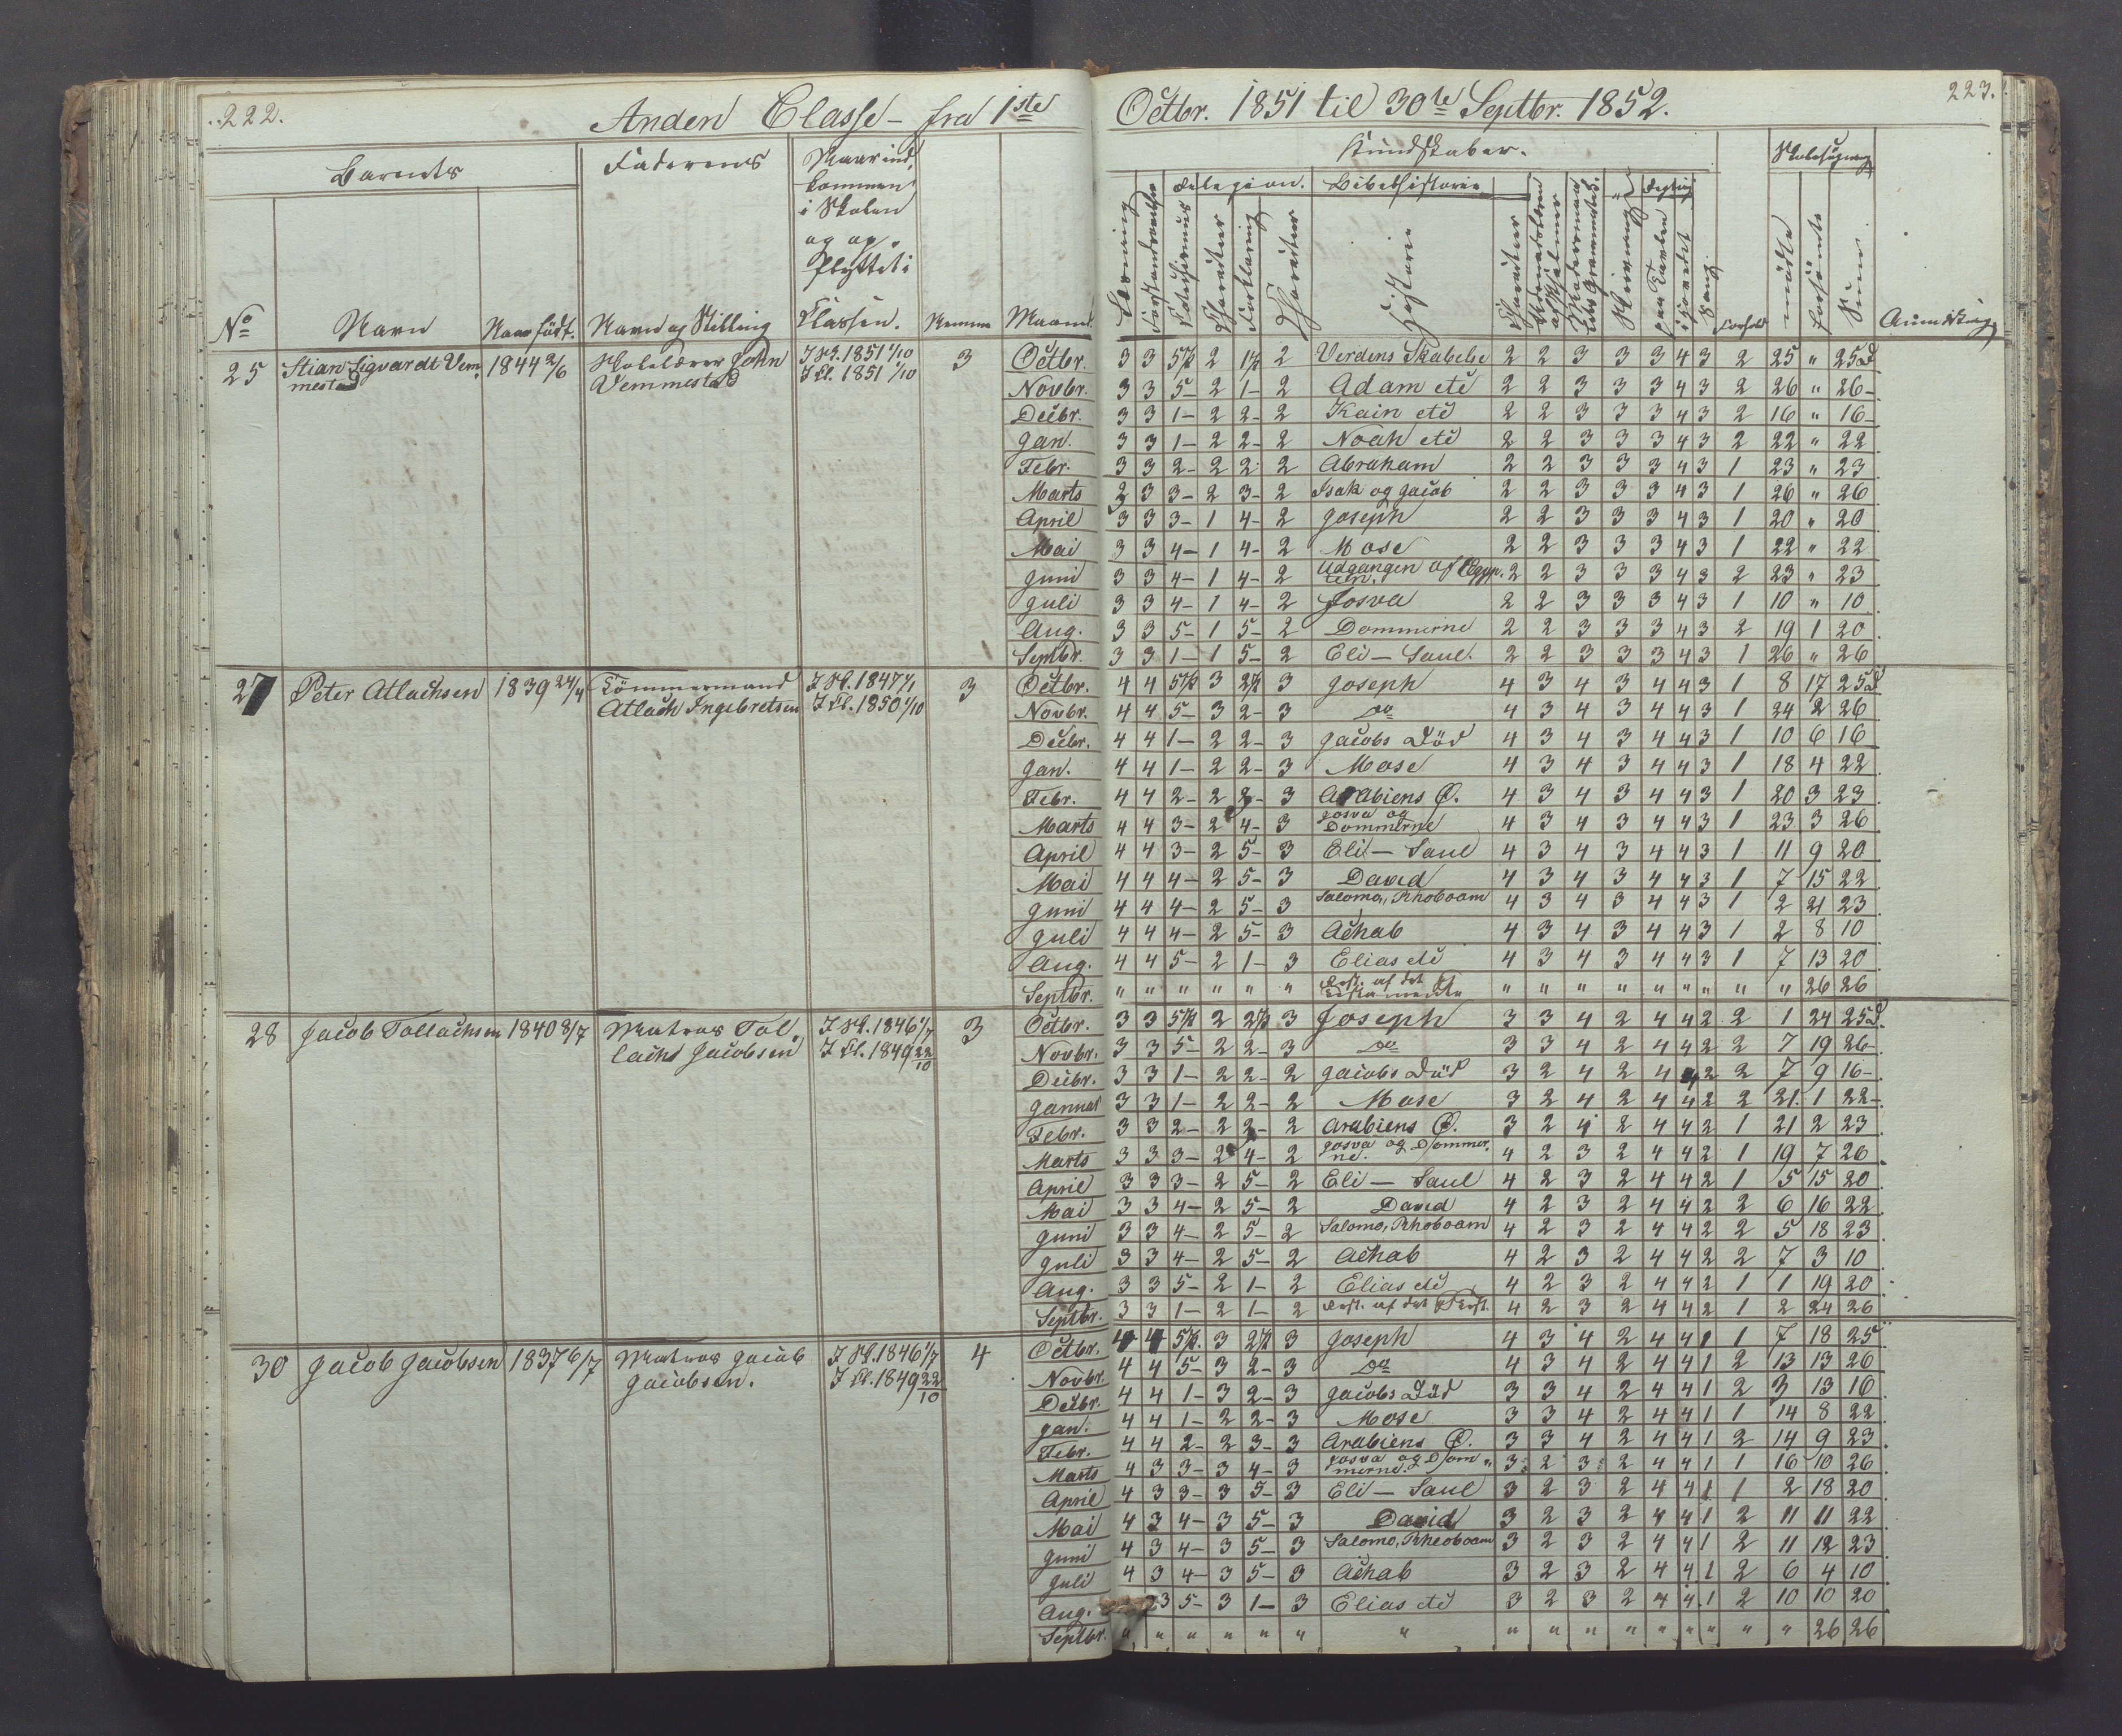 222.
Anden Classe - fra 1ste
Octbr. 1851 til 30te Septbr. 1852.
223.
Barnets
Faderens
Naar ind
kommen
i Skolen
og op-
flyttet i
Classen.
No
Navn
Naar født.
Navn og Stilling
Nemme
Maaned
Kundskaber.
Religion.
Bibelhistorie
Skolesøgning
Læsning
Forklaring
Characteer
Historie
Characteer
Skrivning
paa Tavlen
i Hovedet
Sang
Forhold
mødte
forsømte
Sum
Anmærkning
25 Stian Sigvardt Vem- 1844 2/6 Skolelærer John I Sk. 1851 1/10 3
mestad Vemmestad I Cl. 1851 1/10
Octbr. 3 3 5½ 2 1½ 2 Verdens Skabelse 2 2 3 3 3 4 3 2 25 " 25 D
Novbr. 3 3 5- 2 1- 2 Adam etc 2 2 3 3 3 4 3 2 26 " 26-
Decbr. 3 3 1- 2 2- 2 Kain etc 2 2 3 3 3 4 3 2 16 " 16-
Jan. 3 3 1- 2 2- 2 Noah etc 2 2 3 3 3 4 3 2 22 " 22
Febr. 3 3 2- 2 2- 2 Abraham 2 2 3 3 3 4 3 1 23 " 23
Marts 3 3 3- 2 3- 2 Isak og Jacob 2 2 3 3 3 4 3 1 26 " 26
April 3 3 3- 1 4- 2 Joseph 2 2 3 3 3 4 3 1 20 " 20
Mai 3 3 4- 1 4- 2 Mose 2 2 3 3 3 4 3 1 22 " 22
Juni 3 3 4- 1 4- 2 Udgangen af Ægyp- 2 2 3 3 3 4 3 2 23 " 23
ten.
Juli 3 3 4- 1 4- 2 Josva 2 2 3 3 3 4 3 1 10 " 10
Aug. 3 3 5- 1 5- 2 Dommerne 2 2 3 3 3 4 3 2 19 1 20
Septbr. 3 3 1- 1 5- 2 Eli - Saul. 2 2 3 3 3 4 3 1 26 " 26
27 Peter Atlachsen 1839 24/4 Tömmermand I Sk. 1847 1/1 3
Atlach Ingebretsen I Cl. 1850 1/10
Octbr. 4 4 5½ 3 2½ 3 Joseph 4 3 4 3 4 4 3 1 8 17 25 D
Novbr. 4 4 5- 3 2- 3 Do 4 3 4 3 4 4 3 1 24 2 26
Decbr. 4 4 1- 2 2- 3 Jacobs Död 4 3 4 3 4 4 3 1 10 6 16
Jan. 4 4 1- 2 2- 3 Mose 4 3 4 3 4 4 3 1 18 4 22
Febr. 4 4 2- 2 2- 3 Arabiens Ø. 4 3 4 3 4 4 3 1 20 3 23
Marts 4 4 3- 2 4- 3 Josva og 4 3 4 3 4 4 3 1 23 3 26
Dommerne
April 4 4 3- 2 5- 3 Eli - Saul 4 3 4 3 4 4 3 1 11 9 20
Mai 4 4 4- 2 5- 3 David 4 3 4 3 4 4 3 1 7 15 22
Juni 4 4 4- 2 5- 3 Salomo, Rhoboam 4 3 4 3 4 4 3 1 2 21 23
Juli 4 4 4- 2 5- 3 Achab 4 3 4 3 4 4 3 1 2 8 10
Aug. 4 4 5- 2 1- 3 Elias etc 4 3 4 3 4 4 3 1 7 13 20
Septbr. " " " " " " Rest. af det Gl. " " " " " " " " " 26 26
Testamente
28 Jacob Tollachsen 1840 8/7 Matros Tol- I Sk. 1846 1/7 3
lachs Jacobsen I Cl. 1849 22/10
Octbr. 3 3 5½ 2 2½ 3 Joseph 3 3 4 2 4 4 2 2 1 24 25 D
Novbr. 3 3 5- 2 2- 3 Do 3 3 4 2 4 4 2 2 7 19 26-
Decbr. 3 3 1- 2 2- 2 Jacobs Död 3 2 4 2 4 4 2 2 7 9 16-
Januar 3 3 1- 2 2- 2 Mose 3 2 4 2 4 4 2 2 21 1 22-
Febr. 3 3 2- 2 2- 2 Arabiens Ø. 3 2 4 2 4 4 2 1 21 2 23
Marts 3 3 3- 2 4- 2 Josva og Dommer- 4 2 3 2 4 4 2 1 19 7 26
ne.
April 3 3 3- 2 5- 2 Eli - Saul 4 2 3 2 4 4 2 1 5 15 20
Mai 3 3 4- 2 5- 2 David 4 2 3 2 4 4 2 2 6 16 22
Juni 3 3 4- 2 5- 2 Salomo, Rhoboam 4 2 3 2 4 4 2 2 5 18 23
Juli 3 3 4- 2 5- 2 Achab 4 2 3 2 4 4 2 2 7 3 10
Aug. 3 3 5- 2 1- 2 Elias etc 4 2 3 2 4 4 2 1 1 19 20
Septbr. 3 3 1- 2 1- 2 Rest. af det Gl. Test. 4 2 3 2 4 4 2 1 2 24 26
30 Jacob Jacobsen 1837 6/7 Matros Jacob I Sk. 1846 1/7 4
Jacobsen. I Cl. 1849 22/10
Octbr. 4 4 5½. 3 2½ 3 Joseph 4 3 4 2 4 4 1 1 7 18 25
Novbr. 4 4 5- 3 2- 3 Do 4 3 4 2 4 4 1 2 13 13 26
Decbr. 4 4 1- 3 2- 3 Jacobs Död 3 3 4 2 4 4 1 2 3 13 16
Jan. 4 4 1- 2 2- 3 Mose 3 3 4 2 4 4 1 1 14 8 22
Febr. 4 4 2- 2 3- 3 Arabiens Ø. 3 3 4 2 4 4 1 2 14 9 23
Marts 4 3 3- 3 4- 3 Josva og Dom- 3 2 3 2 4 4 1 1 16 10 26
merne.
April 4 3 3- 3 5- 3 Eli - Saul 3 2 3 2 4 4 1 1 2 18 20
Mai 4 3 4- 3 5- 3 David 3 2 3 2 4 4 1 2 11 11 22
Juni 4 3 4- 3 5- 3 Salomo, Rheoboam 3 2 3 2 4 4 1 2 11 12 23
Juli 4 3 4- 3 5- 3 Achab 3 2 3 2 4 4 1 2 6 4 10
Aug. 3 5- 3 1- 3 Elias etc 3 2 3 2 4 4 1 2 10 10 20
Septbr. " " " " " " " " " " " " " " " " 26 26